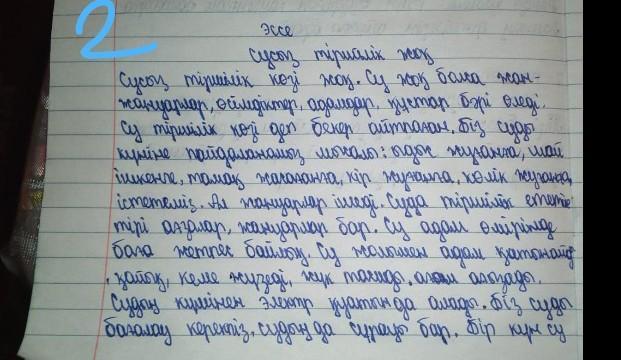 2
Эссе
Сусыз тіршілік жоқ
Сусыз тіршілік көзі жоқ. Су жоқ болса жан-
жануарлар, өсімдіктер, адамдар, құстар бәрі өледі.
Су тіршілік көзі деп бекер айтпаған. Біз суды
күніне пайдаланамыз мысалы: ыдыс жуғанға, шай
ішкенге, тамақ жасағанға, кір жуғанға, көлік жуғанда
істетеміз. Ал жануарлар ішеді. Суда тіршілік ететін
тірі ағзалар, жануарлар бар. Су адам өмірінде
баға жетпес байлық. Су жолымен адам қатынайд
қайық, кеме жүзеді, жүк тасиды.
Судың күшінен электр қуатын да алады. Біз суды
бағалау керекпіз, судың да сұрауы бар. Бір күн су